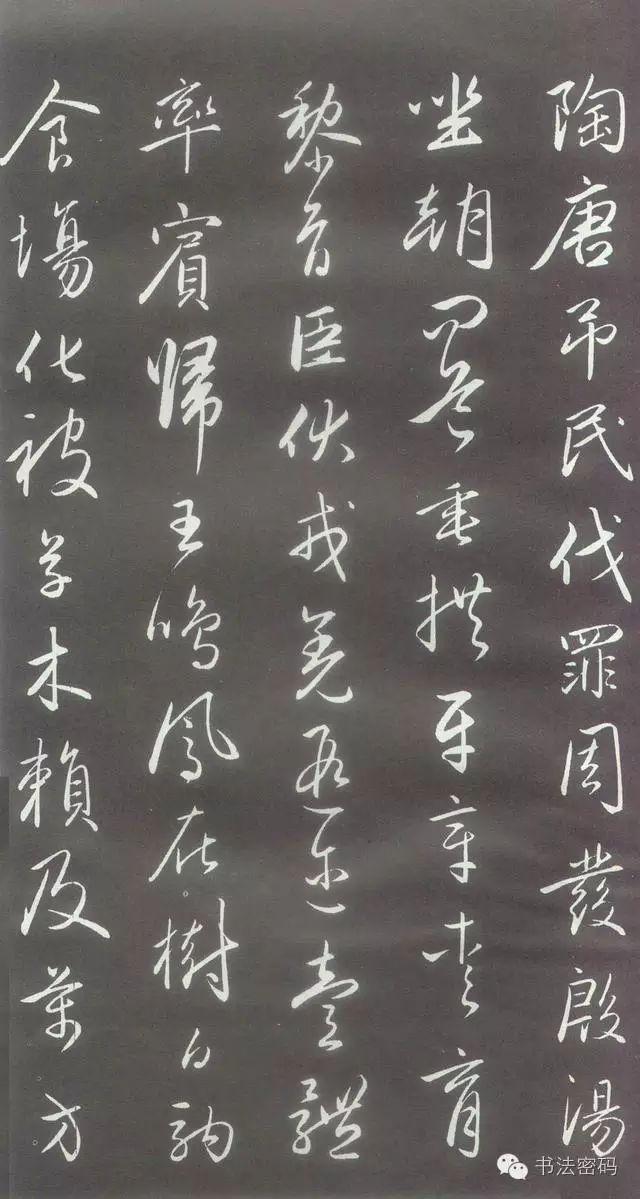 陶唐吊民伐罪周發殷湯
坐朝問道垂拱平章愛育
黎首臣伏戎羌遐邇壹體
率賓歸王鳴鳳在樹白駒
食場化被草木賴及萬方
书法密码